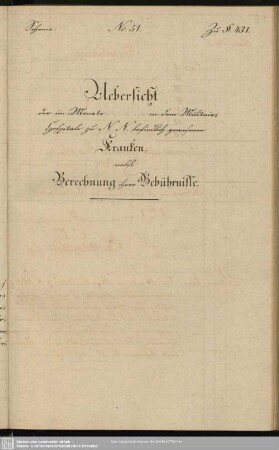 Schema. No. 51. Zu §. 431.
Uebersicht
der im Monate in dem Militair-
Hospitale zu N. N. befindlich gewesenen
Kranken,
nebst
Berechnung ihrer Gebührnisse.